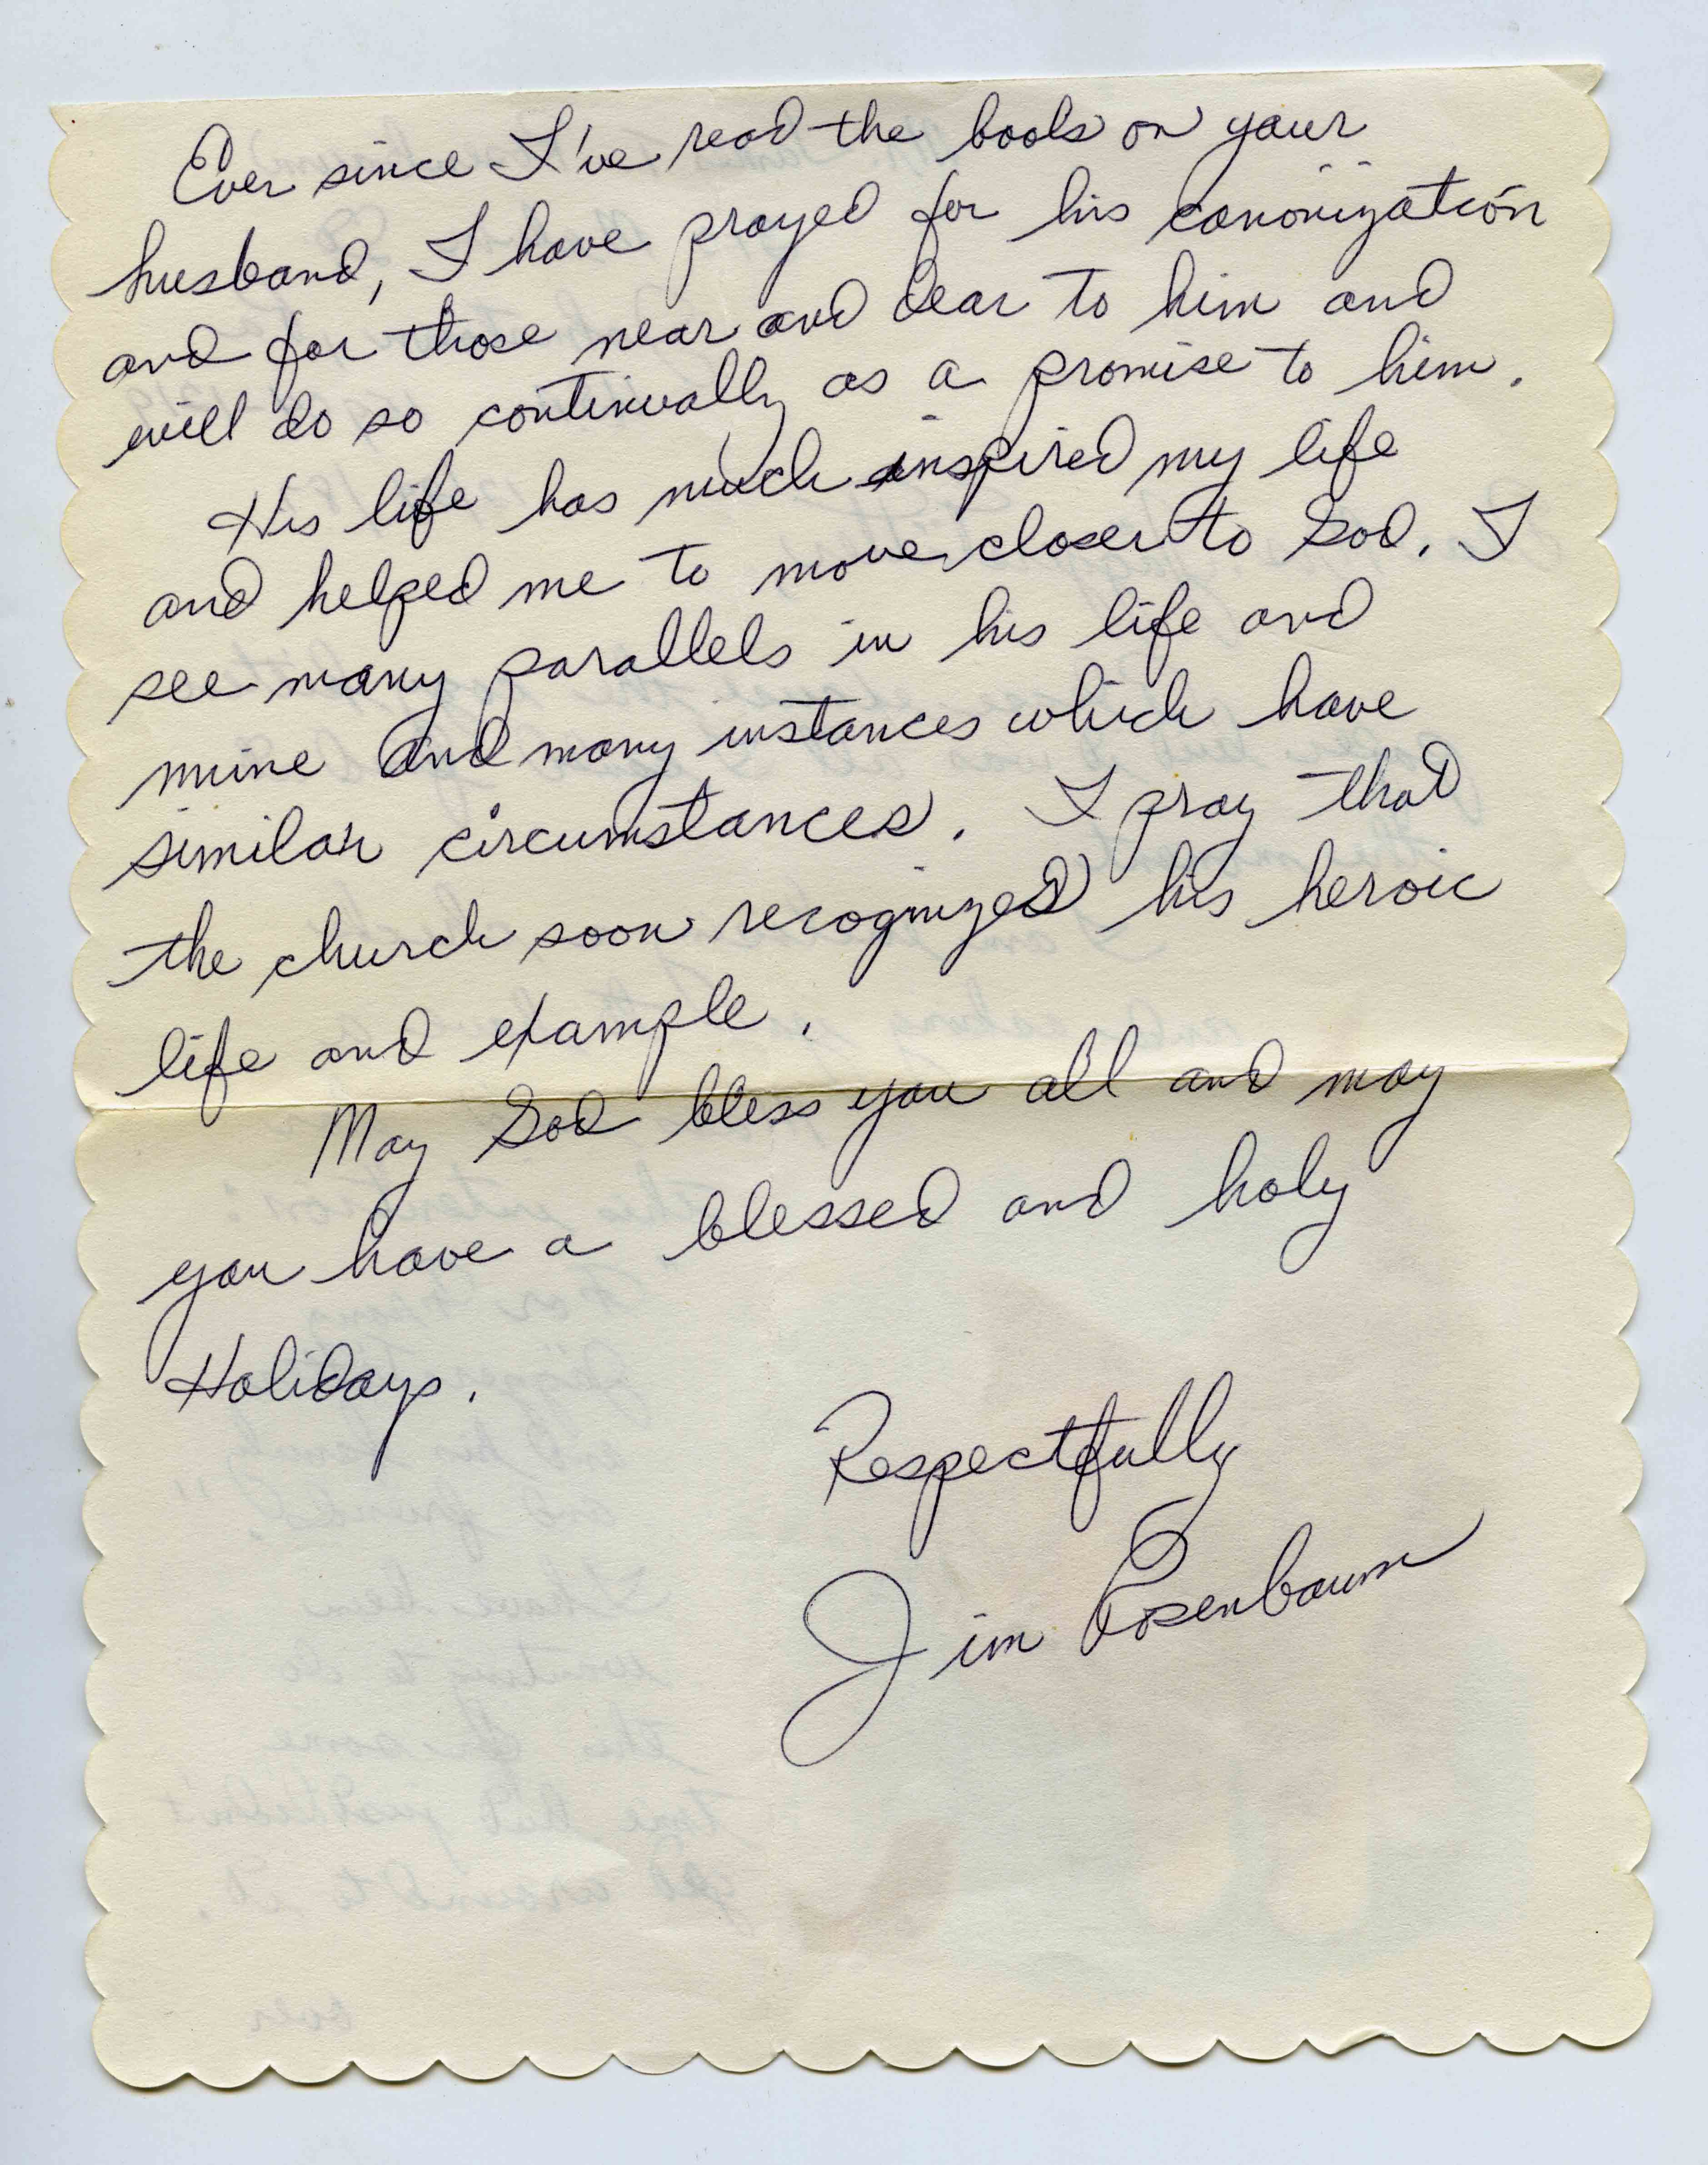 Ever since I've read the books on your
husband, I have prayed for his canonization
and for those near and dear to him and
will do so continually as a promise to him.
His life has much inspired my life
and helped me to move closer to God. I
see many parallels in his life and
mine and many instances which have
similar circumstances. I pray that
the church soon recognizes his heroic
life and example.
May God bless you all and may
you have a blessed and holy
Holidays.
Respectfully
Jim Rosenbaum